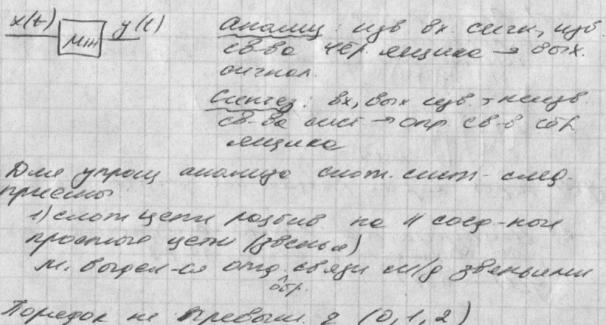 x(t) y(t)
Анализ: изв вх. сигн, изв.
св-ва чёр. ящика → вых.
сигнал.
Синтез: вх, вых изв, неизв
св-ва сист → опр св-в
ящика
Для упрощ анализа слож. сист- след.
приёмы
1) слож цепи разбив на
простые цепи (звенья)
м. выдел-ся связи м/д звеньями
обр.
Порядок не превыш. 2 (0,1,2)